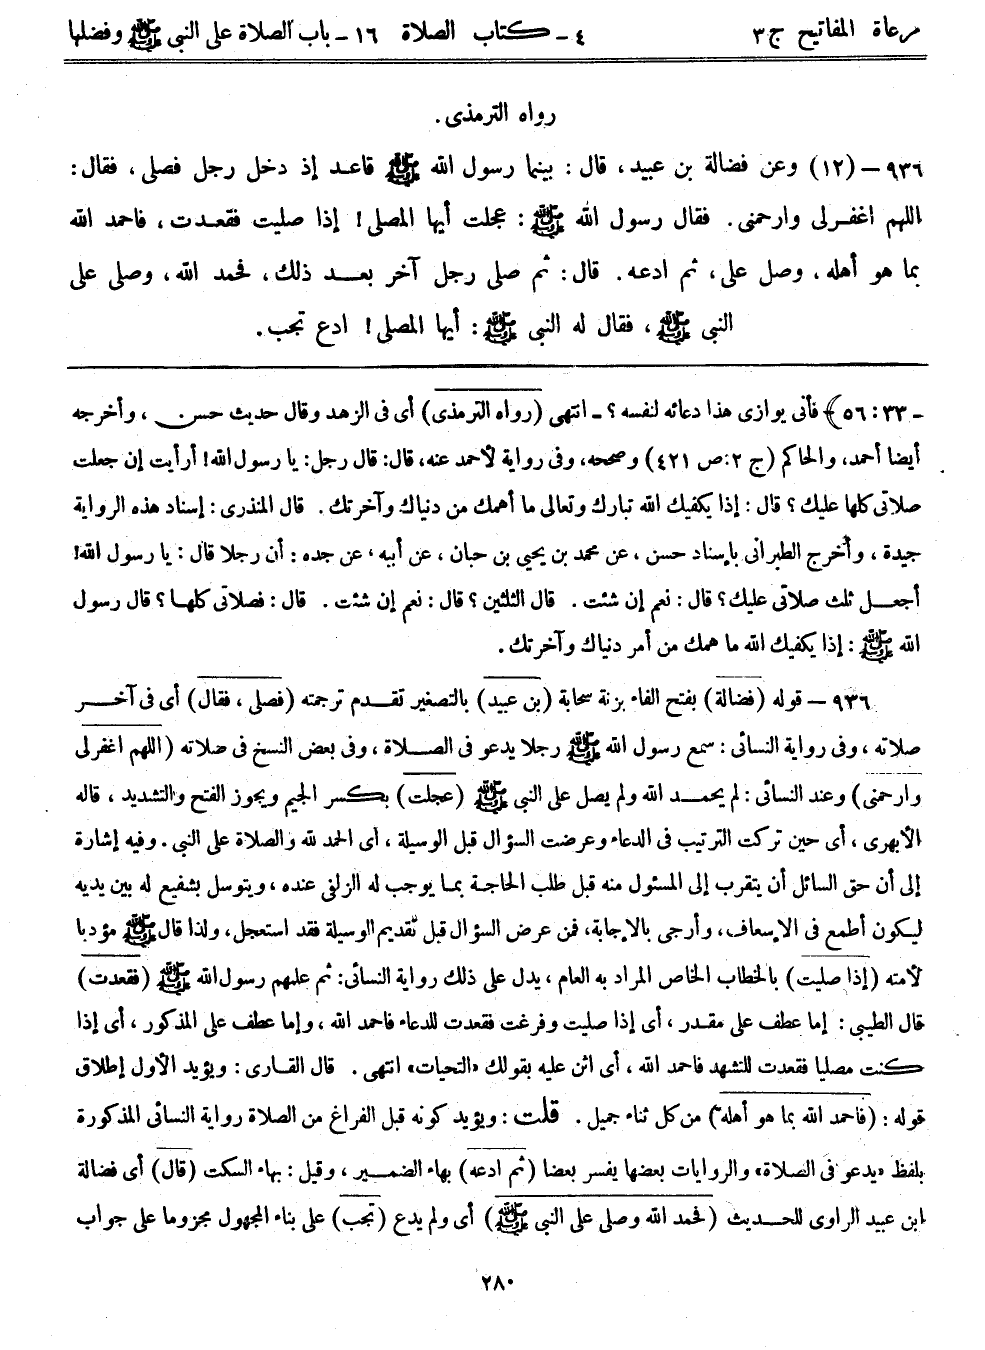 مرعاة المفاتيح ج ٣ ٤ - كتاب الصلاة ١٦ - باب الصلاة على النبي ﷺ وفضلها
رواه الترمذى.
٩٣٦ - (١٢) وعن فضالة بن عبيد، قال: بينما رسول الله ﷺ قاعد إذ دخل رجل فصلى، فقال:
اللهم اغفرلى وارحمنى. فقال رسول الله ﷺ: عجلت أيها المصلى! إذا صليت فقعدت، فاحمد الله
بما هو أهله، وصل على، ثم ادعه. قال: ثم صلى رجل آخر بعد ذلك، فحمد الله، وصلى على
النبى ﷺ، فقال له النبى ﷺ: أيها المصلى! ادع تجب.
- ٣٣: ٥٦﴾ فأنى يوازى هذا دعائه لنفسه؟ - انتهى (رواه الترمذى) أى فى الزهد وقال حديث حسن، وأخرجه
أيضا أحمد، والحاكم (ج ٢: ص ٤٢١) وصححه، وفى رواية لأحمد عنه، قال: قال رجل: يا رسول الله! أرأيت إن جعلت
صلاتى كلها عليك؟ قال: إذا يكفيك الله تبارك وتعالى ما أهمك من دنياك وآخرتك. قال المنذرى: إسناد هذه الرواية
جيدة، وأخرج الطبرانى بإسناد حسن، عن محمد بن يحيى بن حبان، عن أبيه، عن جده: أن رجلا قال: يا رسول الله!
أجعل ثلث صلاتى عليك؟ قال: نعم إن شئت. قال الثلثين؟ قال: نعم إن شئت. قال: فصلاتى كلها؟ قال رسول
الله ﷺ: إذا يكفيك الله ما همك من أمر دنياك وآخرتك.
٩٣٦ - قوله (فضالة) بفتح الفاء بزنة سحابة (بن عبيد) بالتصغير تقدم ترجمته (فصلى، فقال) أى فى آخر
صلاته، وفى رواية النسائى: سمع رسول الله ﷺ رجلا يدعو فى الصلاة، وفى بعض النسخ فى صلاته (اللهم اغفرلى
وارحمنى) وعند النسائى: لم يحمد الله ولم يصل على النبى ﷺ (عجلت) بكسر الجيم ويجوز الفتح والتشديد، قاله
الأبهرى، أى حين تركت الترتيب فى الدعاء وعرضت السؤال قبل الوسيلة، أى الحمد لله والصلاة على النبى. وفيه إشارة
إلى أن حق السائل أن يتقرب إلى المسئول منه قبل طلب الحاجة بما يوجب له الزلفى عنده، ويتوسل بشفيع له بين يديه
ليكون أطمع فى الإسعاف، وأرجى بالإجابة، فمن عرض السؤال قبل تقديم الوسيلة فقد استعجل، ولذا قال ﷺ مؤدبا
لأمته (إذا صليت) بالخطاب الخاص المراد به العام، يدل على ذلك رواية النسائى: ثم علمهم رسول الله ﷺ (فقعدت)
قال الطيبى: إما عطف على مقدر، أى إذا صليت وفرغت فقعدت للدعاء فاحمد الله، وإما عطف على المذكور، أى إذا
كنت مصليا فقعدت للتشهد فاحمد الله، أى اثن عليه بقولك «التحيات» انتهى. قال القارى: ويؤيد الأول إطلاق
قوله: (فاحمد الله بما هو أهله) من كل ثناء جميل. قلت: ويؤيد كونه قبل الفراغ من الصلاة رواية النسائى المذكورة
بلفظ «يدعو فى الصلاة» والروايات بعضها يفسر بعضا (ثم ادعه) بهاء الضمير، وقيل: بهاء السكت (قال) أى فضالة
ابن عبيد الراوى للحديث (فحمد الله وصلى على النبى ﷺ) أى ولم يدع (تجب) على بناء المجهول مجزوما على جواب
٢٨٠